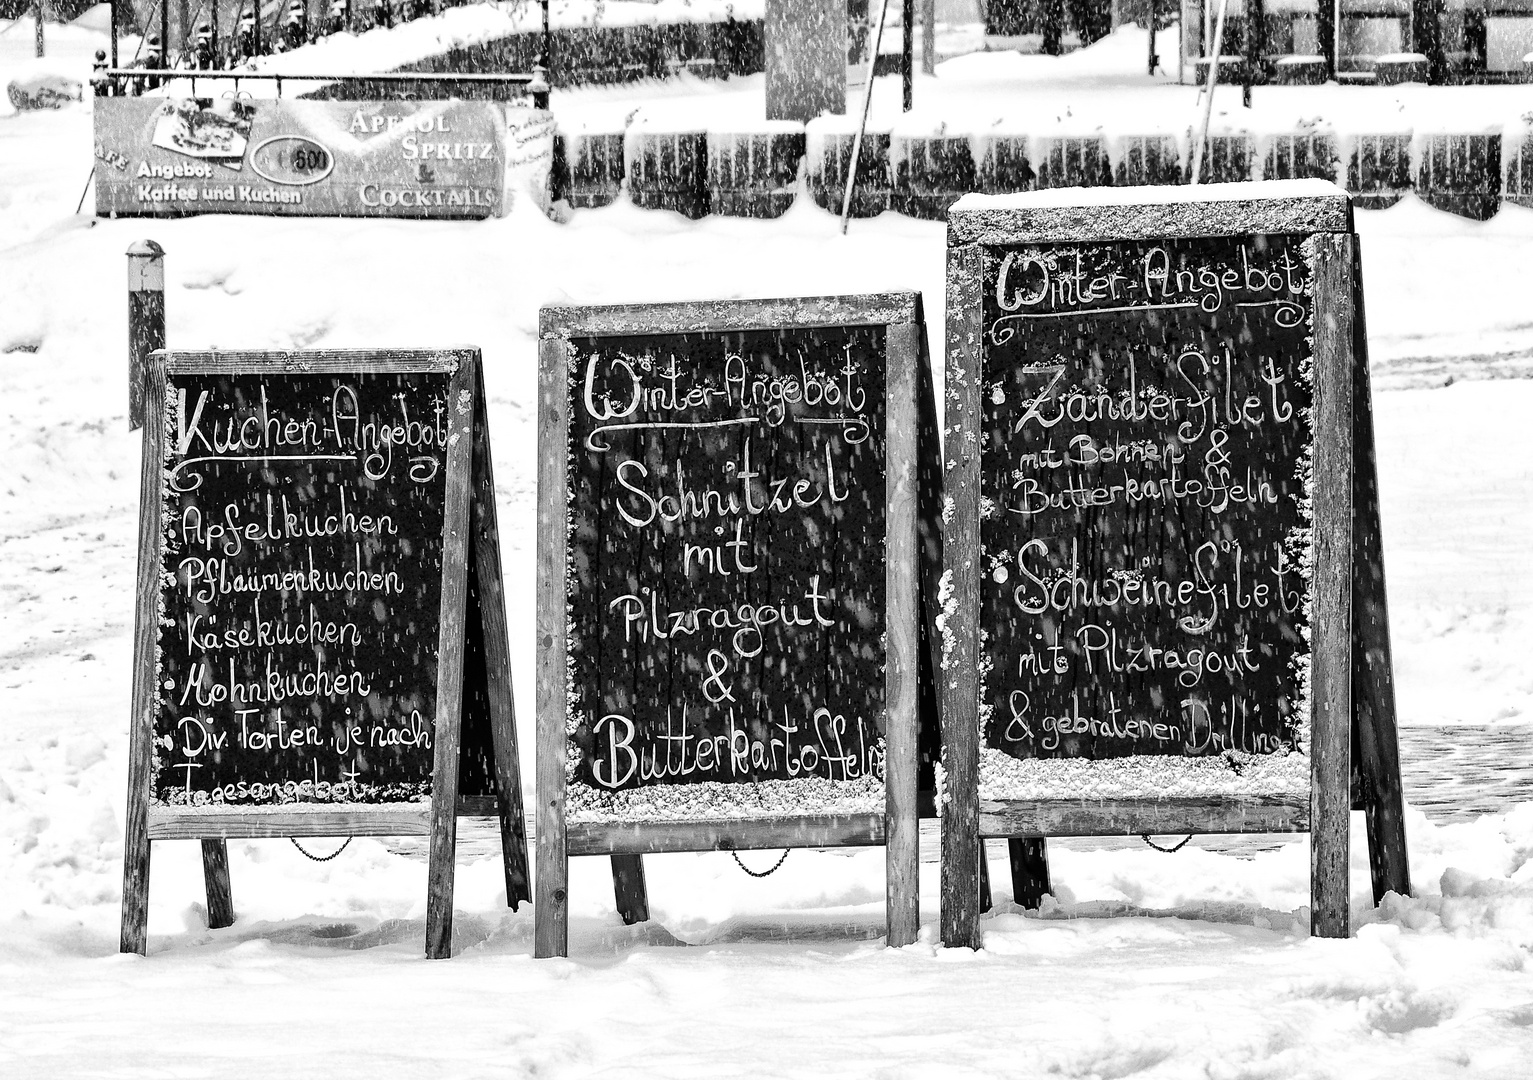 Angebot
Kaffee und Kuchen
APEROL
SPRITZ
&
COCKTAILS
Kuchen-Angebot
Apfelkuchen
Pflaumenkuchen
Käsekuchen
Mohnkuchen
Div. Torten, je nach
Tagesangebot
Winter-Angebot
Schnitzel
mit
Pilzragout
&
Butterkartoffeln
Winter-Angebot
Zanderfilet
mit Bohnen &
Butterkartoffeln
Schweinefilet
mit Pilzragout
& gebratenen Drilling